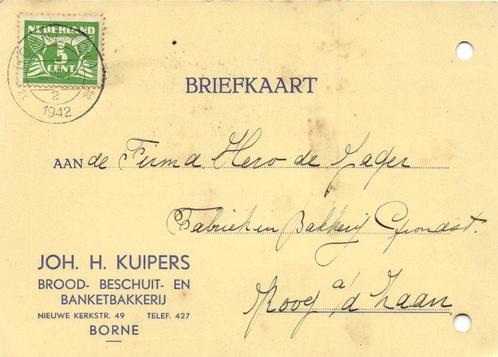 NEDERLAND
5
CENT
2
1942
BRIEFKAART
AAN de Firma Hero de Jager
Fabriek in Bakkerij Grondst.
Koog a/d Zaan
JOH. H. KUIPERS
BROOD- BESCHUIT- EN
BANKETBAKKERIJ
NIEUWE KERKSTR. 49 TELEF. 427
BORNE